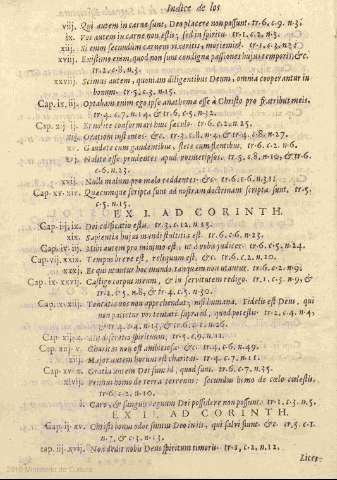 Indice de los
viij. Qui autem in carne sunt, Deo placere non possunt. tr. 6. c. 9. n. 3.
ix. Vos autem in carne non estis; sed in spiritu. tr. 1. c. 2. n. 3.
xiij. Si enim secundum carnem vixeritis, moriemini. tr. 1. c. 3. n. 31
xviij. Existimo enim, quod non sunt condignæ passiones hujus temporis; &c.
tr. 2. c. 8. n. 3.
xxviij. Scimus autem, quoniam diligentibus Deum, omnia cooperantur in
bonum. tr. 5. c. 3. n. 15.
Cap. ix. iij. Optabam enim ego ipse anathema esse à Christo pro fratribus meis.
tr. 4. c. 7. n. 14. & tr. 6. c. 5. n. 32.
Cap. xij. ij. Et nolite conformari huic sæculo. tr. 6. c. 2. n. 25.
Orationi instantes. &c. tr. 3. c. 8. n. 4. & tr. 4. c. 8. n. 27.
xv. Gaudere cum gaudentibus, flere cum flentibus. tr. 6. c. 2. n. 6.
Nolite esse prudentes apud vosmetipsos. tr. 5. c. 8. n. 10. & tr. 6.
c. 6. n. 23.
xvij. Nulli malum pro malo reddentes. &c. tr. 6. c. 6. n. 31
Cap. xv. iv. Quæcumque scripta sunt ad nostram doctrinam scripta sunt. tr. 5.
c. 5. n. 15.
EX I. AD CORINTH.
Cap. iij. ix. Dei ædificatio estis. tr. 3. c. 12. n. 13.
xix. Sapientia hujus mundi stultitia est. tr. 6. c. 6. n. 23.
Cap. iv. iij. Mihi autem pro minimo est, ut à vobis judicer. tr. 6. c. 5. n. 24.
Cap. vij. xxix. Tempus breve est, reliquum est, &c. tr. 6. c. 2. n. 10.
xxxj. Et qui utuntur hoc mundo, tanquam non utantur. tr. 6. c. 2. n. 9.
Cap. ix. xxvij. Castigo corpus meum, & in servitutem redigo. tr. 1. c. 3. n. 9. &
tr. 2. c. 5. n. 8. & tr. 4. c. 5. n. 30.
Cap. x. xiij. Tentatio vos non apprehendat, nisi humana. Fidelis est Deus, qui
non patietur vos tentari supra id, quod potestis. tr. 2. c. 4. n. 4.
& tr. 4. n. 15. & tr. 6. c. 1. n. 26.
Cap. xij. x. Alij discretio spirituum. tr. 5. c. 9. n. 11.
Cap. xiij. v. Charitas non est ambitiosa. &c. tr. 4. c. 6. n. 49.
xiij. Major autem horum est charitas. tr. 4. c. 7. n. 11.
Cap. xv. x. Gratia autem Dei sum id, quod sum. tr. 6. c. 7. n. 35.
xlvij. Primus homo de terra terrenus: secundus homo de cœlo cœlestis.
tr. 6. c. 2. n. 10.
l. Caro, & sanguis regnum Dei possidere non possunt. tr. 1. c. 3. n. 5.
EX II. AD CORINTH.
Cap. ij. xv. Christi bonus odor sumus Deo in iis, qui salvi sunt. &c. tr. 5. c. 1.
n. 7. & c. 3. n. 13.
Cap. iij. xvij. Non dedit nobis Deus spiritum timoris. tr. 1. c. 2. n. 12.
Licet
2010 Ministerio de Cultura